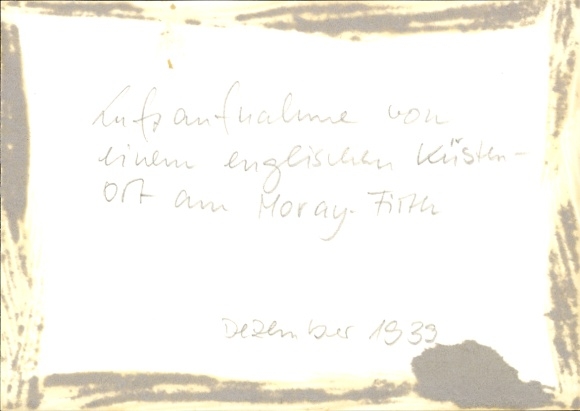 Luftaufnahme von
einem englischen Küsten-
ort am Moray-Firth
Dezember 1939